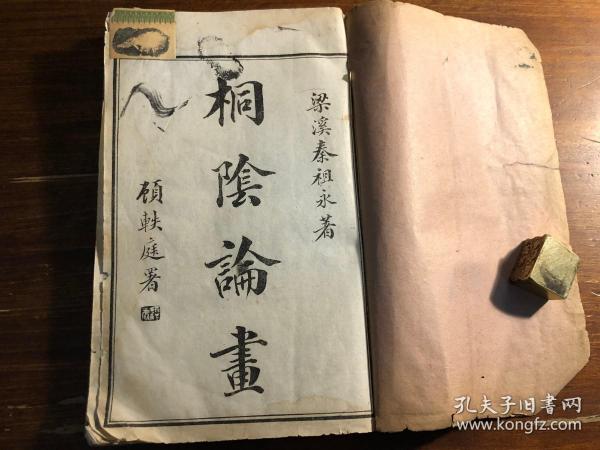 梁溪秦祖永著
桐陰論畫
顧軼庭署
孔夫子旧书网
www.kongfz.com